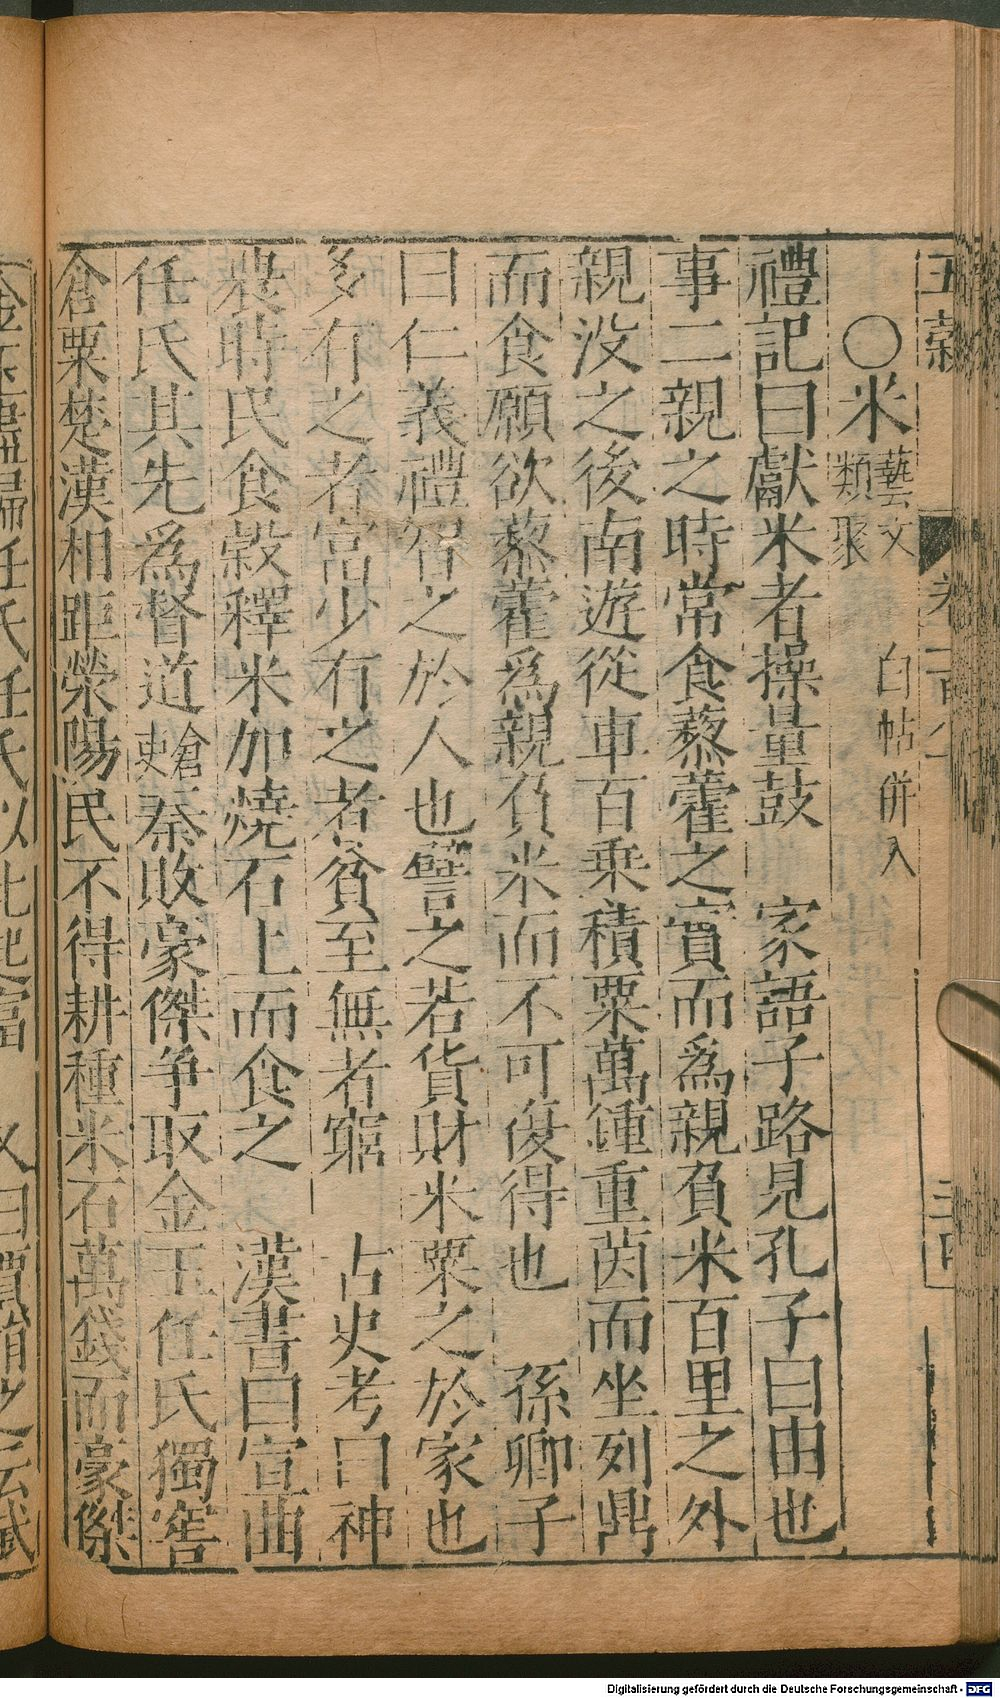 五穀 卷一百 三四
○米 藝文類聚 白帖併入
禮記曰獻米者操量鼓 家語子路見孔子曰由也
事二親之時常食藜藿之實而為親負米百里之外
親沒之後南遊從車百乗積粟萬鍾重茵而坐列鼎
而食願欲藜藿為親負米而不可復得也 孫卿子
曰仁義禮智之於人也譬之若貨財米粟之於家也
多有之者富少有之者貧至無者窮 古史考曰神
農時民食穀釋米加燒石上而食之 漢書曰宣曲
任氏其先為督道倉吏秦敗豪傑爭取金玉任氏獨窖
倉粟楚漢相距滎陽民不得耕種米石萬錢而豪傑
金玉盡歸任氏任氏以此起富 又曰賈捐之云賊
Digitalisierung gefördert durch die Deutsche Forschungsgemeinschaft - DFG